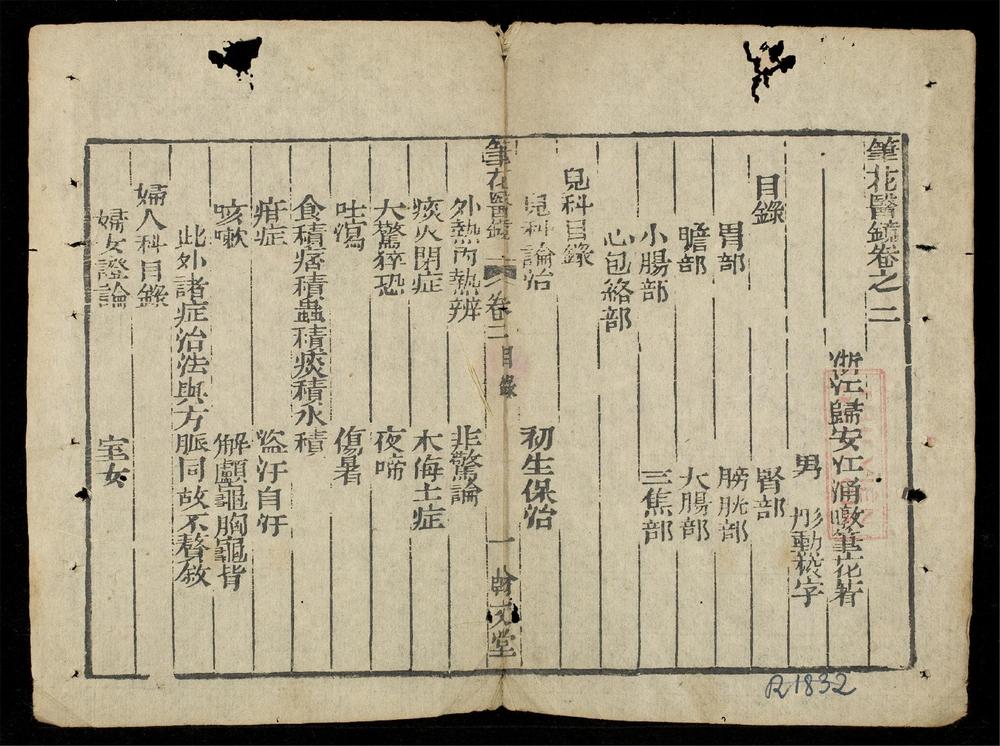 筆花醫鏡卷之二
浙江歸安江涵暾筆花著
男 彤勳發字
目錄
腎部
胃部 膀胱部
膽部 大腸部
小腸部 三焦部
心包絡部
兒科目錄
兒科論治 初生保治
筆花醫鏡 卷二 目錄 一 文堂
外熱內熱辨 非驚論
痰火閉症 木侮土症
大驚猝恐 夜啼
吐瀉 傷暑
食積痞積蟲積痰積水積
疳症 盜汗自汗
咳嗽 解顱龜胸龜背
此外諸症治法與方脈同故不贅敘
婦人科目錄
婦女證論 室女
R1832